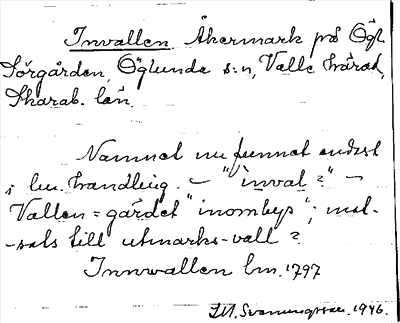 Invallen Åkermark på Ögl.
Sörgården, Öglunda s:n, Valle härad,
Skarab. län.
Namnet nu funnet endast
i lm. handling. – "inval?" –
Vallen = gärdet "inombys"; mot-
-sats till utmarks-vall?
Innwallen lm. 1797
J.M. Svanungsson. 1946.